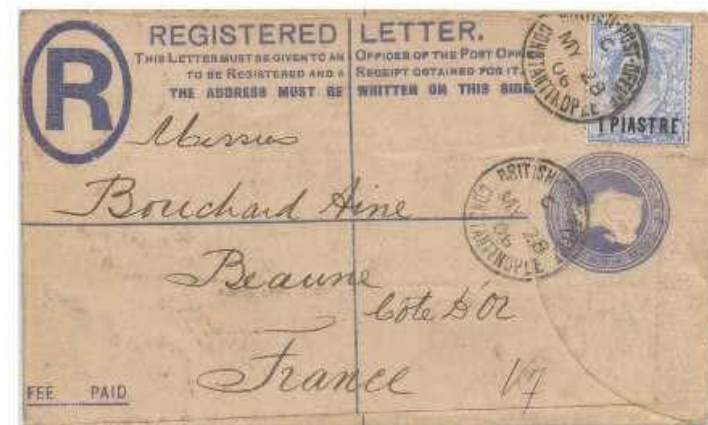 R
REGISTERED LETTER.
THIS LETTER MUST BE GIVEN TO AN OFFICER OF THE POST OFFICE
TO BE REGISTERED AND A RECEIPT OBTAINED FOR IT.
THE ADDRESS MUST BE WRITTEN ON THIS SIDE.
BRITISH·POST·OFFICE
CONSTANTINOPLE
C
MY 28
06
1 PIASTRE
Messrs
Bouchard Aine
BRITISH
CONSTANTINOPLE
C
MY 28
06
Beaune
Cote D'Or
France
FEE PAID